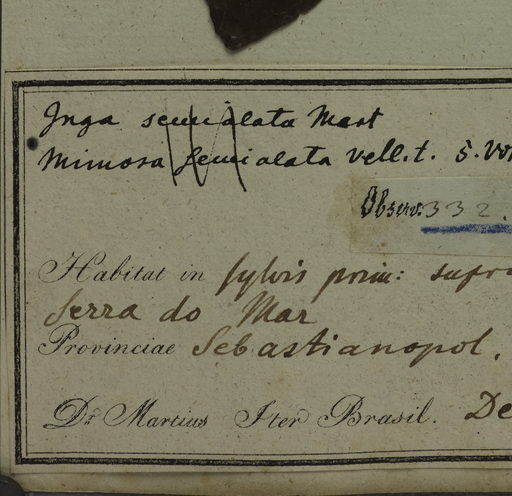 Inga semialata Mart
Mimosa semialata Vell. t. 5.
Observ. 332.
Habitat in sylvis prim: supra
Serra do Mar
Provinciae Sebastianopol.
Dr. Martius Iter Brasil. De